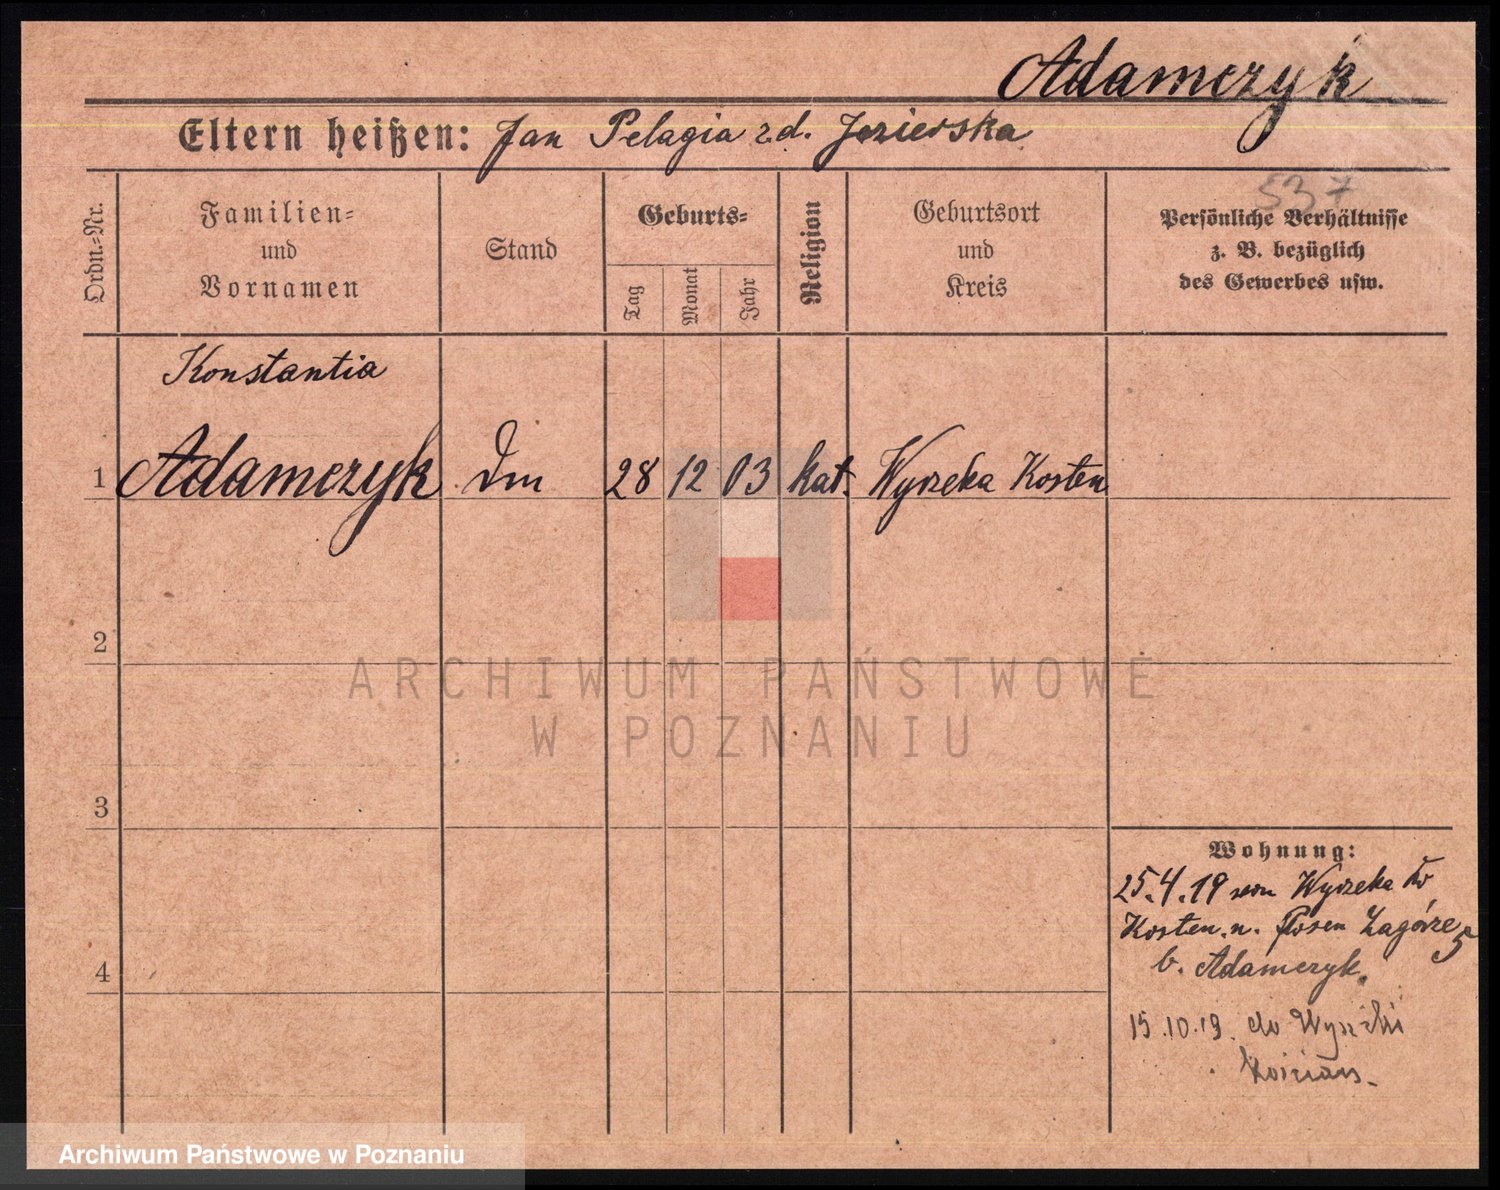 Adamczyk
Eltern heißen: Jan Pelagia zd. Jezierska
537
Ordn.-Nr.
Familien-
und
Vornamen
Stand
Geburts-
Tag
Monat
Jahr
Religion
Geburtsort
und
Kreis
Persönliche Verhältnisse
z. B. bezüglich
des Gewerbes usw.
Konstantia
1 Adamczyk 28 12 03 kat. Wyrzeka Kosten
2
3
4
Wohnung:
25.4.19 von Wyrzeka
Kosten. n. Posen Zagórze 5
b. Adamczyk.
15.10.19. do
ARCHIWUM PAŃSTWOWE
W POZNANIU
Archiwum Państwowe w Poznaniu